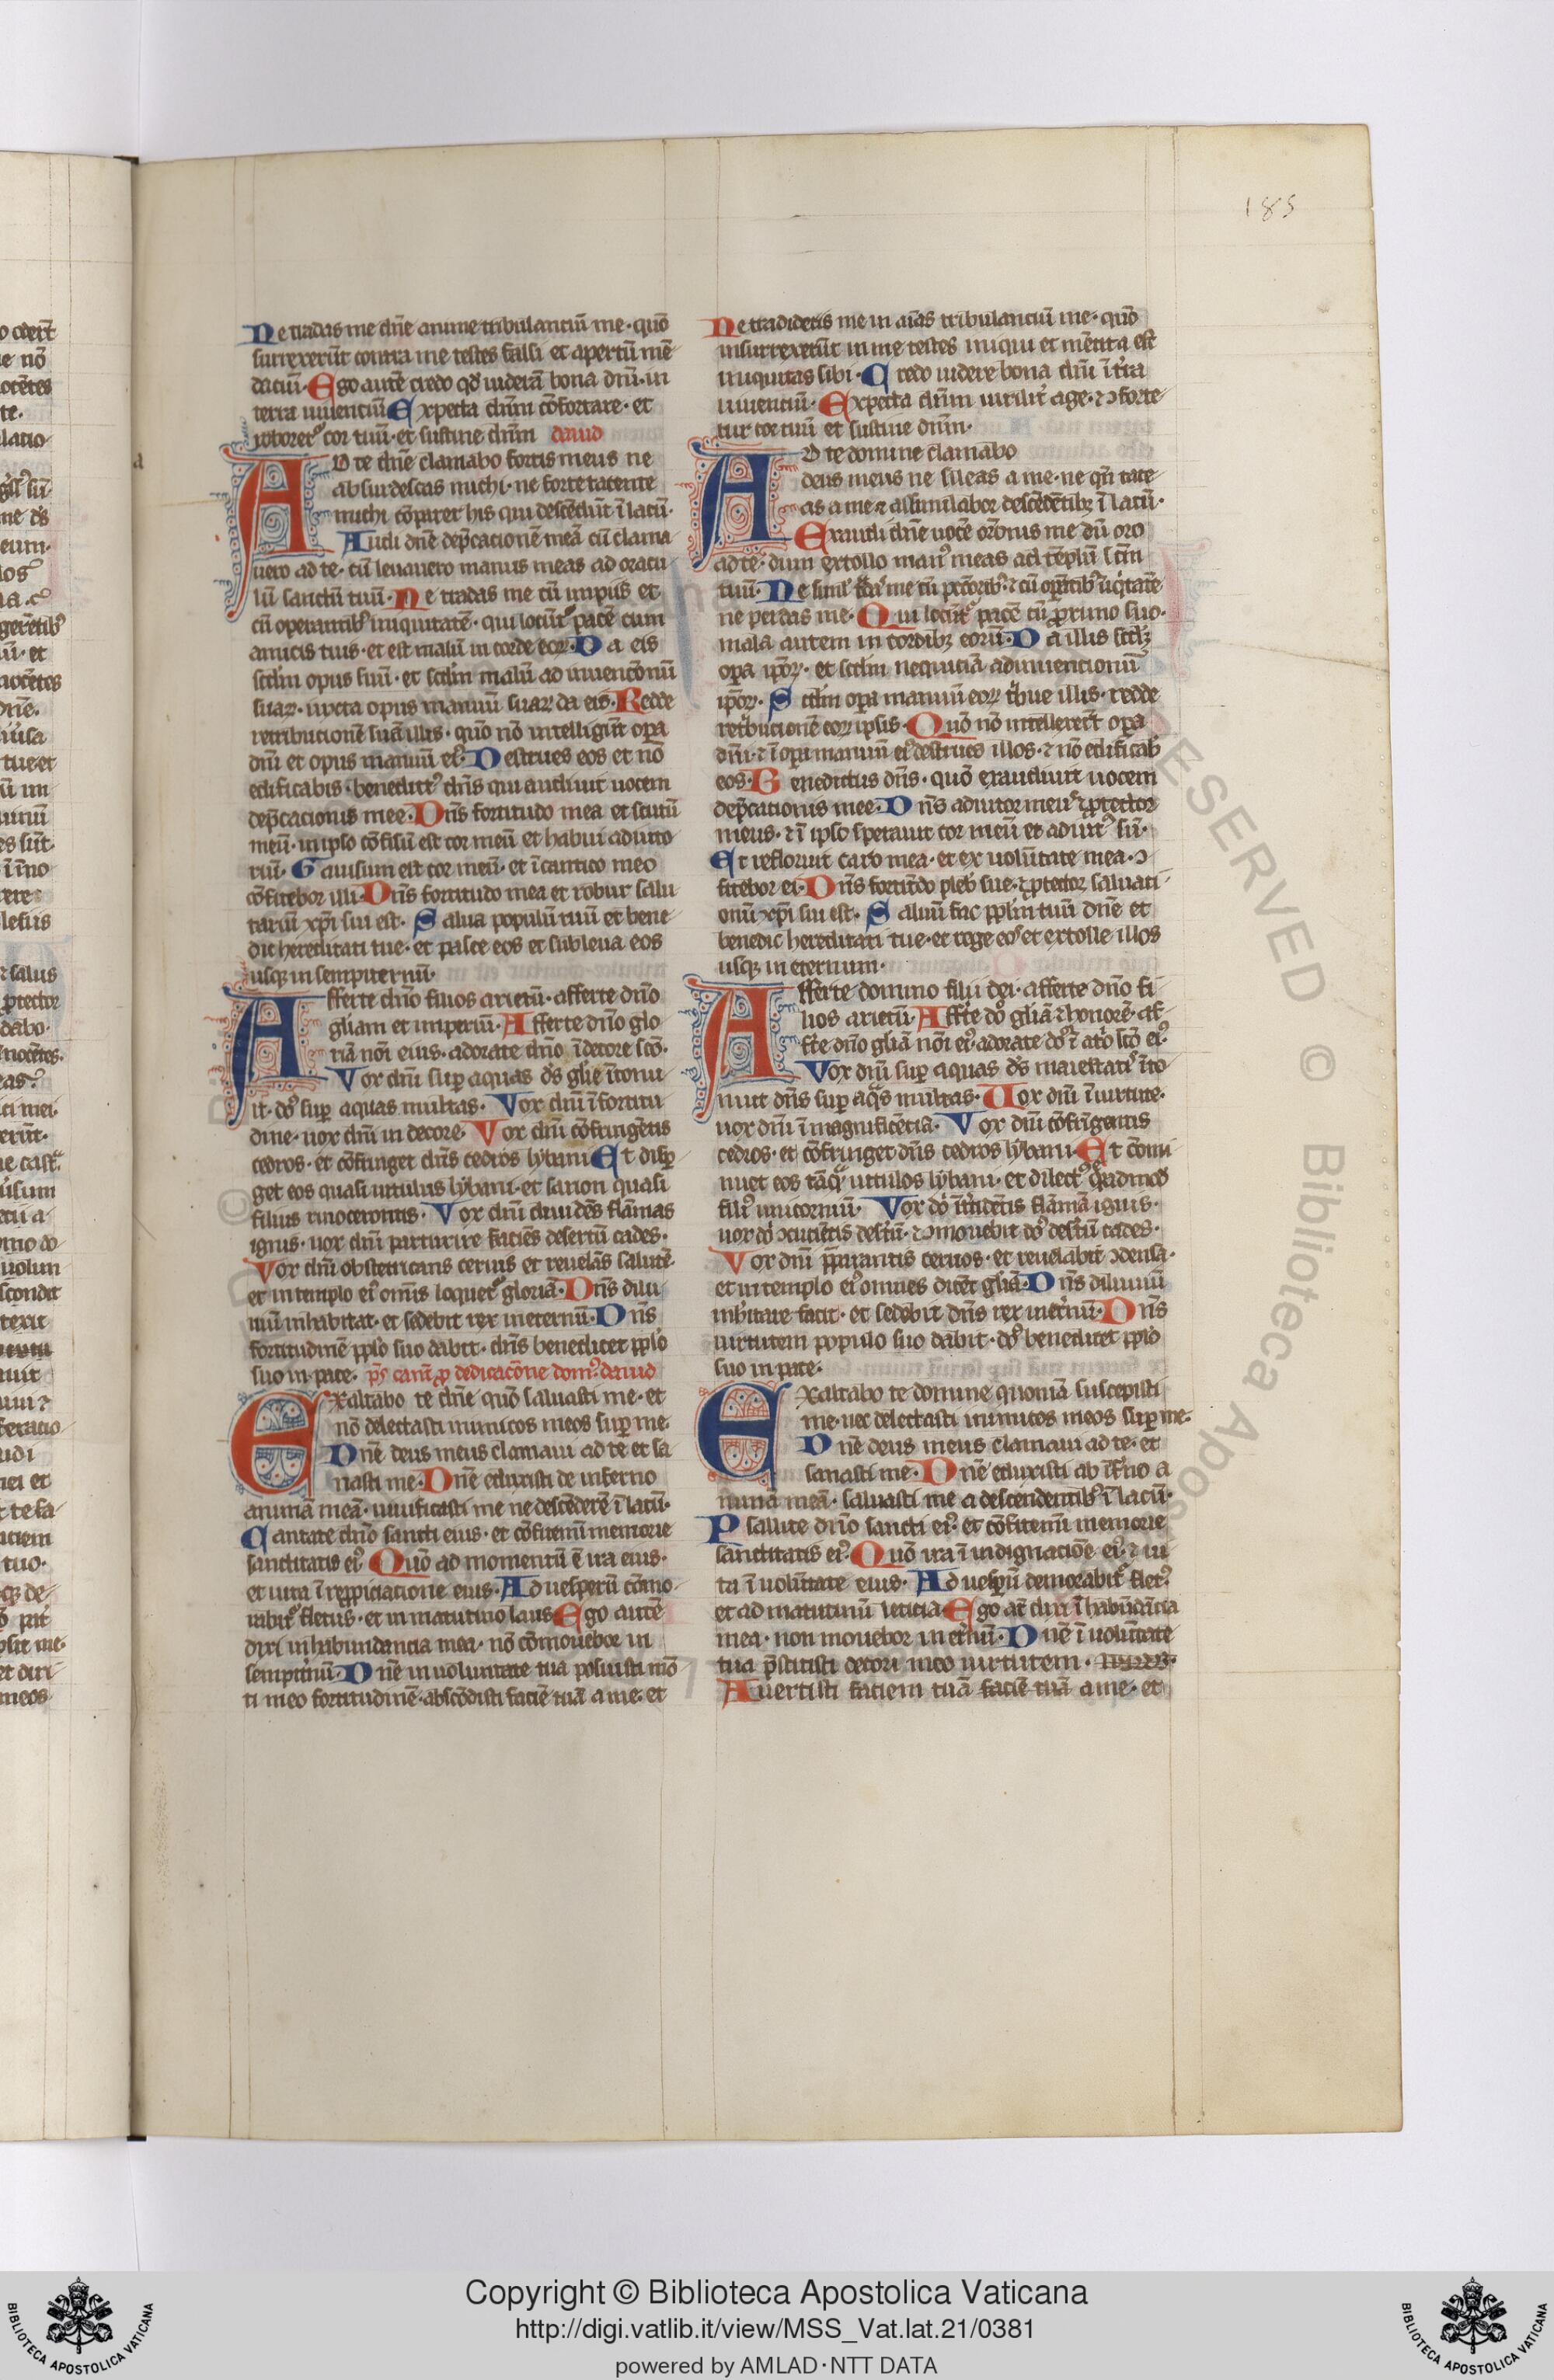 185
Ne tradas me dñe anime tribulantiũ me · quõ
surrexerũt contra me testes falsi et apertũ mẽ
daciũ · Ego autẽ credo qđ uiderã bona dñi · in
terra uiuentiũ Expecta dñm cõfortare · et
roboret᷒ cor tuũ · et sustine dñm dauid
AD te dñe clamabo fortis meus ne
absurdescas michi · ne forte tacente
michi cõparer his qui descẽdũt ĩ lacũ ·
Audi dñe dep̃cacionẽ meã cũ clama
uero ad te · cũ leuauero manus meas ad oracu
lũ sanctũ tuũ · Ne tradas me cũ impiis et
cũ operantib᷒ iniquitatẽ · qui locũt᷒ pacẽ cum
amicis tuis · et est malũ in corde eoꝝ · Da eis
scd̃m opus suũ · et scd̃m malũ ad inuencõnũ
suaꝝ · iuxta opus manuũ suaꝝ da eis · Redde
retribucionẽ suã illis · quõ nõ intelligũt oꝑa
dñi et opus manuũ ei᷒ · Destrues eos et nõ
edificabis · benedict᷒ dñs qui audiuit uocem
dep̃cacionis mee · Dñs fortitudo mea et scutũ
meũ · in ipso cõfisũ est cor meũ et habui adiuto
riũ · Gauisum est cor meũ · et ĩ cantico meo
cõfitebor illi · Dñs fortitudo mea et robur salu
tariũ xp̃i sui est · Salua populũ tuũ et bene
dic hereditati tue · et pasce eos et subleua eos
usqꝫ in sempiternũ ·
Afferte dño filios arietũ · afferte dño
gl̃iam et imperiũ · Afferte dño glo
riã nõi eius · adorate dño ĩ decore scõ ·
Vox dñi suꝑ aquas d̃s gl̃ie ĩtonu
it · do᷒ suꝑ aquas multas · Vox dñi ĩ fortitu
dine · uox dñi in decore Vox dñi cõfringẽtis
cedros · et cõfringet dñs cedros lybani Et disꝑ
get eos quasi uitulus lybani · et sarion quasi
filius rinocerontis · Vox dñi diuidẽs flãmas
ignis · uox dñi parturire faciẽs desertũ cades ·
Vox dñi obstetricans ceruis et reuelãs salutẽ
et in templo ei᷒ om̃s loquet᷒ gloriã · Dñs dilu
uiũ inhabitat · et sedebit rex in eternũ · Dñs
fortitudinẽ ꝓplo suo dabit · dñs benedicet ꝓplo
suo in pace · p̃s cant̃ ꝓ dedicacõne dom᷒ dauid
Exaltabo te dñe quõ saluasti me · et
nõ delectasti inimicos meos suꝑ me ·
Dñe deus meus clamaui ad te et sa
nasti me · Dñe eduxisti de inferno
animã meã · uiuificasti me ne descẽderẽ ĩ lacũ ·
Cantate dño sancti eius · et cõfitemi memorie
sanctitatis ei᷒ Quõ ad momentũ ẽ ira eius ·
et uita ĩ repropiciatione eius · Ad uesperũ cõmo
rabit᷒ fletus · et in matutino laus Ego autẽ
dixi in habundancia mea · nõ cõmouebor in
sempit̃nũ · Dñe in uoluntate tua posuisti mõ
ti meo fortitudinẽ · abscõdisti faciẽ tuã a me · et
Ne tradideris me in aĩas tribulanciũ me · quõ
insurrexerũt in me testes iniqui et mẽtita est
iniquitas sibi · Credo uidere bona dñi ĩ t̃ra
uiuentiũ · Expecta dñm uirilit̃ age · ꝛ ↄforte
tur cor tuũ et sustine dñm ·
AD te domine clamabo
deus meus ne sileas a me · ne qñ tace
as a me ꝛ assimilabor descẽdẽtibꝫ ĩ lacũ ·
Exaudi dñe uocẽ or̃onis me dũ oro
ad te · dum extollo man᷒ meas ad tẽplũ sc̃m
tuũ · Ne simĩ t̃da᷒ me cũ pc̃corib᷒ · ꝛ cũ oꝑãtib᷒ ĩiq̃tatẽ
ne perdas me · Qui locũt᷒ pacẽ cũ ꝓximo suo ·
mala autem in cordibꝫ eorũ · Da illis scd̃ꝫ
oꝑa ipõꝝ · et scd̃m nequitiã adinuentionũ
ipõꝝ · Scd̃m oꝑa manuũ eoꝝ t̃bue illis · redde
ret̃bucionẽ eoꝝ ipsis · Quõ nõ intellexer̃t oꝑa
dñi · ꝛ ĩ oꝑa manuũ ei᷒ destrues illos · ꝛ nõ edificab̃
eos · Benedictus dñs · quõ exaudiuit uocem
dep̃cationis mee · Dñs adiutor meu᷒ ꝛ ꝓtector
meus · ꝛ ĩ ipso sperauit cor meũ et adiut᷒ sũ ·
Et refloruit caro mea · et ex uolũtate mea · ↄ
fitebor ei · Dñs fortit̃do pleb̃ sue · ꝛ ꝓtector saluati
onũ xp̃i sui est · Saluũ fac ꝓplm tuũ dñe et
benedic hereditati tue · et rege eo᷒ et extolle illos
usqꝫ in eternum ·
Afferte domino filii dei · afferte dño fi
lios arietũ · Affte do᷒ gl̃iã ꝛ honorẽ · af
fte dño gl̃iã nõi ei᷒ · adorate do᷒ ĩ at̃o sc̃o ei᷒ ·
Vox dñi suꝑ aquas d̃s maiestati᷒ ĩto
nuit dñs suꝑ aq̃s multas · Uox dñi ĩ uirtute ·
uox dñi ĩ magnificẽcia · Vox dñi cõfrĩgentis
cedros · et cõfringet dñs cedros lybani · Et cõmi
nuet eos tãq̃ uitulos lybani · et dilect᷒ q̃admod̃
fili᷒ unicorniũ · Vox do᷒ ĩt̃cidẽtis flãmã ignis ·
uox do᷒ ↄcuciẽtis des̃tũ · ꝛ ↄmouebit do᷒ des̃tũ cades ·
Vox dñi p̃parantis ceruos · et reuelabit ↄdensa ·
et in templo ei᷒ omnes dicẽt gl̃iã · Dñs diluuiũ
inh̃itare facit · et sedebit dñs rex in et̃nũ · Dñs
uirtutem populo suo dabit · do᷒ benedicet ꝓplo
suo in pace ·
Exaltabo te domine quoniã suscepisti
me · nec delectasti inimicos meos suꝑ me ·
Dñe deus meus clamaui ad te · et
sanasti me · Dñe eduxisti ab ĩf̃no a
nimã meã · saluasti me a descendentib᷒ ĩ lacũ ·
Psallite dño sancti ei᷒ · et cõfitemi memorie
sanctitatis ei᷒ · Quõ ira ĩ indignatiõe ei᷒ · ꝛ ui
ta ĩ uolũtate eius · Ad uesꝑũ demorabit᷒ flet᷒
et ad matutinũ leticia · Ego at̃ dixi ĩ habũdãcia
mea · non mouebor in et̃nũ · Dñe ĩ uolũtate
tua p̃stitisti decori meo uirtutem ·
Auertisti faciem tuã faciẽ tuã a me · et
Copyright © Biblioteca Apostolica Vaticana
http://digi.vatlib.it/view/MSS_Vat.lat.21/0381
powered by AMLAD·NTT DATA
BIBLIOTECA APOSTOLICA VATICANA
BIBLIOTECA APOSTOLICA VATICANA